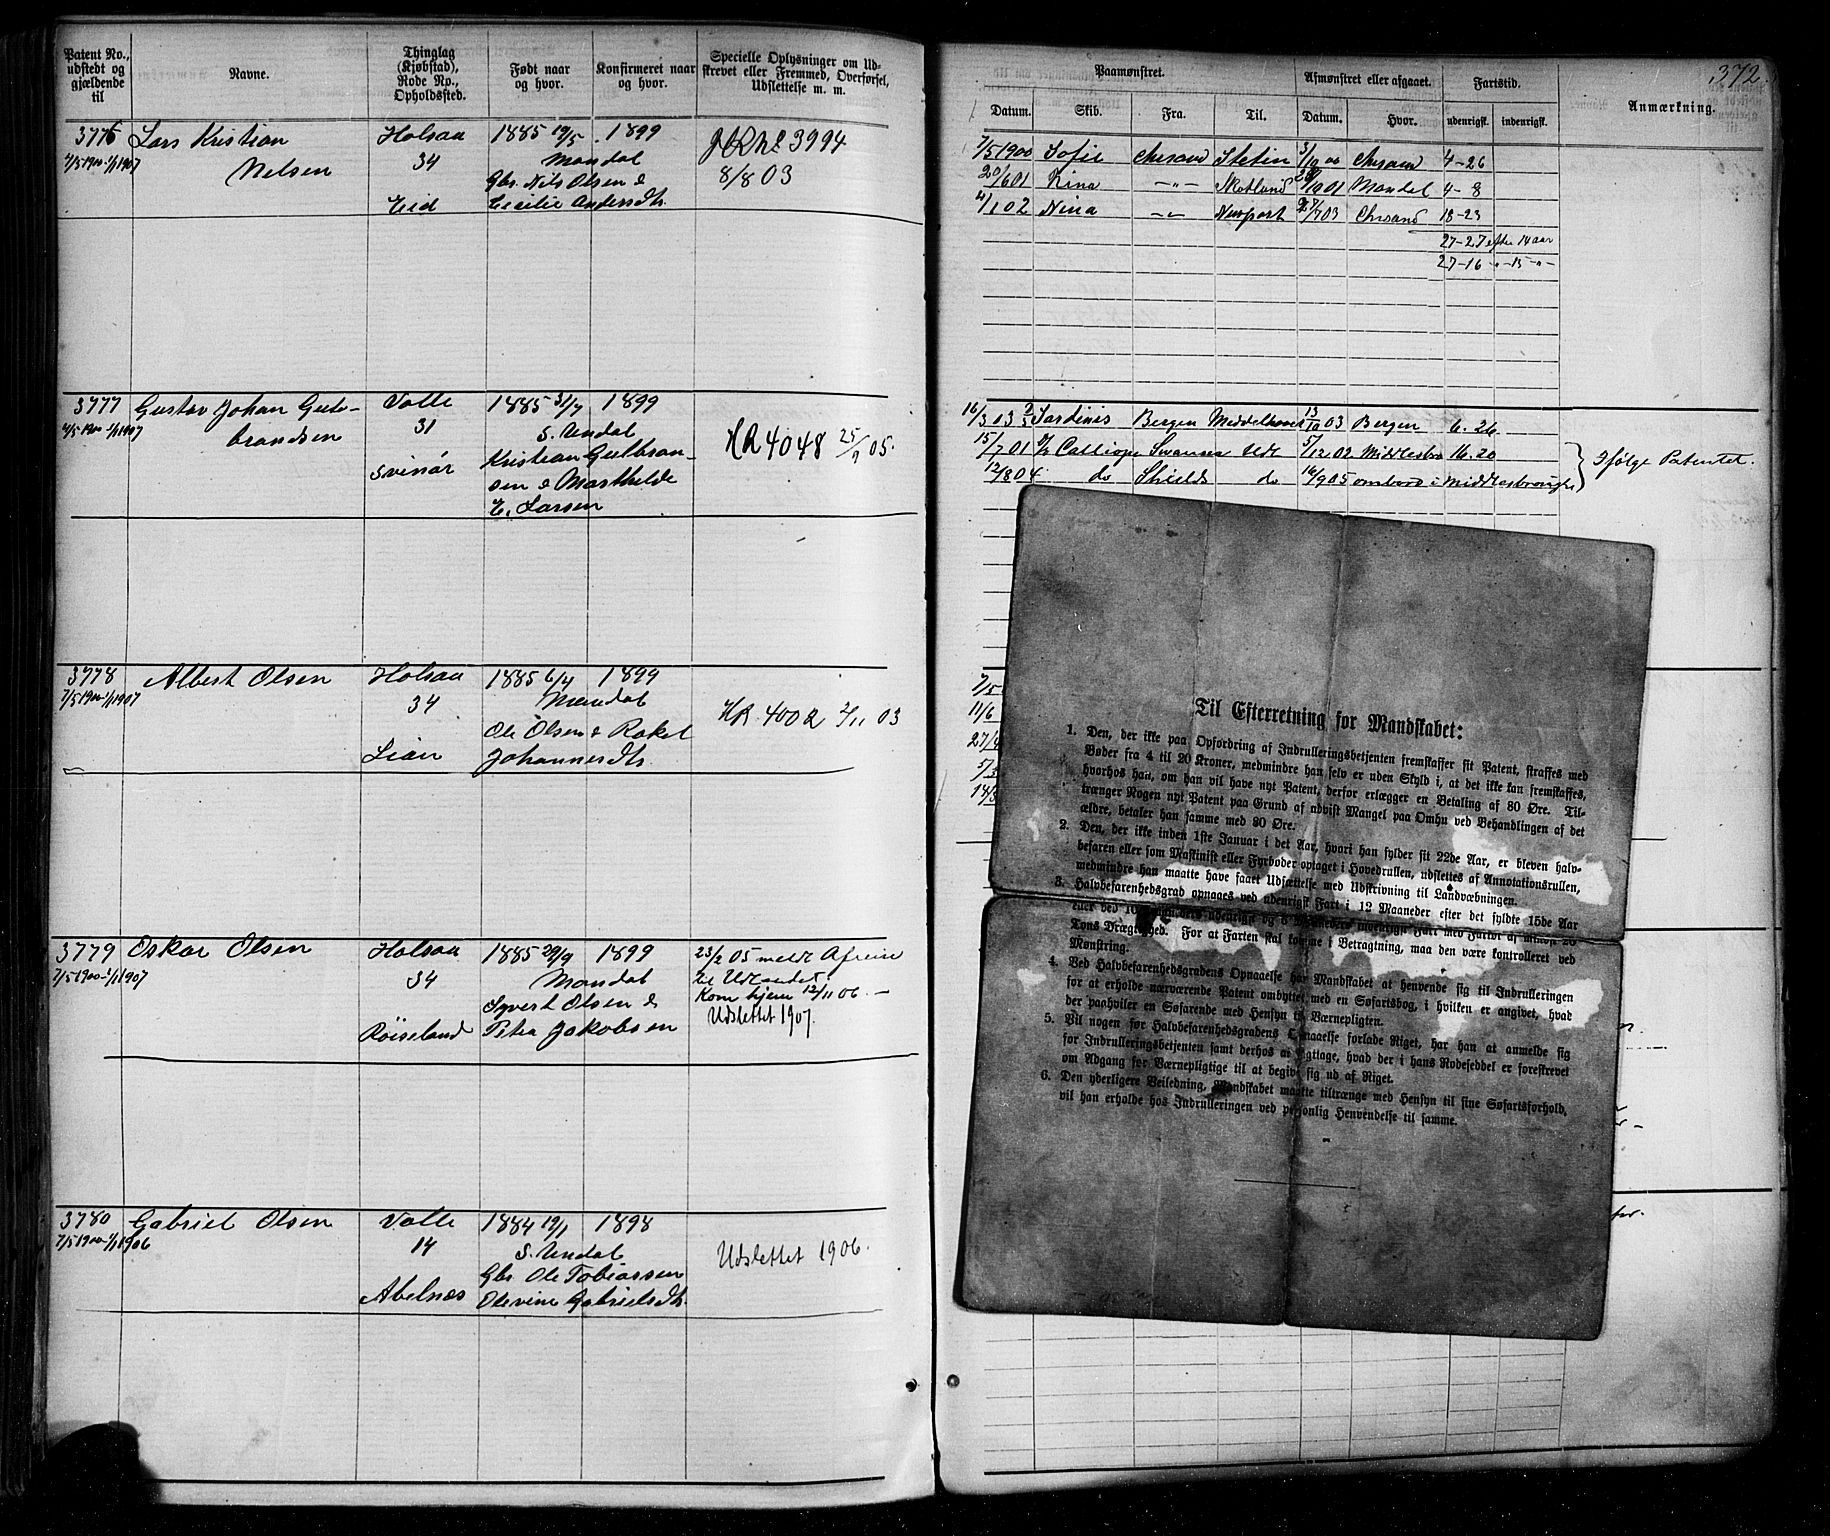 Patent No., udstedt og gjældende til
Navne.
Thinglag (Kjøbstad), Rode No., Opholdssted.
Født naar og hvor.
Konfirmeret naar og hvor.
Specielle Oplysninger om Udskrevet eller Fremmed, Overførsel, Udslettelse m. m.
3776 Lars Kristian Holsaa 1885 19/5 1899 3994
7/5 1900-1/1 1907 Nelsen 34 Mandal 8/8 03
Gbr. Nils Olsen &
Eid Cecilie Andersdtr.
3777 Gustav Johan Gulb- Valle 1885 31/7 1899
brandsen 31 S. Undal HR 4048
Svinør Kristian Gulbran-
sen & Marthilde
E. Larsen
3778 Albert Olsen Holsaa 1885 6/4 1899
7/5 1900-1/1 1907 34 Mandal HR. 4002 2/11 03
Ole Olsen & Rakel
Lian Johannesdtr.
3779 Oskar Olsen Holsaa 1885 29/9 1899 23/2 05 meldt Afreise
7/5 1900-1/1 1907 34 Mandal til Udlandet
Syvert Olsen & Kom hjem 12/11 06.
Røiseland Petra Jakobsen Udslettet 1907.
3780 Gabriel Olsen Valle 1884 19/1 1898
7/5 1900-1/1 1906 14 S. Undal Udslettet 1906.
Gbr Ole Tobiassen
Abelnæs Olevine Gabrielsdtr.
372.
Paamønstret.
Afmønstret eller afgaaet.
Fartstid.
Anmærkning.
Datum. Skib. Fra. Til. Datum. Hvor. udenrigsk. indenrigsk.
7/5 1900 Sofie Chrsand Stetin 3/10 00 Chrsand 4-26
20/6 01 Nina -"- Skotland Mandal 4-8
4/1 02 Nina -"- Newport Chrsand 18-23
27-27 efter 14 aar
27-16 -"- 15 -"-
Sardinis Bergen 13/10 03 Bergen 6.26
15/7 01 Calliope Swansea 5/12 02 Middlesbro 16.20 Ifølge Patentet.
12/8 04 do Shields do 16/9 05 ombord i Middlesbrough
7/5
11/6
27/4
Til Efterretning for Mandskabet:
1. Den, der ikke paa Opfordring af Indrulleringsbetjenten fremskaffer sit Patent, straffes med
Bøder fra 4 til 20 Kroner, medmindre han selv er uden Skyld i, at det ikke kan fremskaffes,
hvorhos han, om han vil have nyt Patent, derfor erlægger en Betaling af 80 Øre. Til-
trænger Nogen nyt Patent paa Grund af advist Mangel paa Omhu ved Behandlingen af det
ældre, betaler han samme med 80 Øre.
2. Den, der ikke inden 1ste Januar i det Aar, hvori han fylder sit 22de Aar, er bleven halv-
befaren eller som Maskinist eller Fyrbøder optaget i Hovedrullen, udslettes af Annotationsrullen,
medmindre han maatte have faaet Udsættelse med Udskrivning til Landværbningen.
3. Halvbefarenhedsgrad opnaaes ved udenrigsk Fart i 12 Maaneder efter det fyldte 15de Aar
Tons Drægtighed. For at Farten skal komme i Betragtning, maa den være kontrolleret ved
Mønstring.
4. Ved Halvbefarenhedsgradens Opnaaelse har Mandskabet at henvende sig til Indrulleringen
for at erholde nærværende Patent ombyttet med en Søfartsbog, i hvilken er angivet, hvad
der paahviler en Søfarende med Hensyn til Værnepligten.
5. Vil nogen før Halvbefarenhedsgradens Opnaaelse forlade Riget, har han at anmelde sig
for Indrulleringsbetjenten samt derhos at iagttage, hvad der i hans Rodeseddel er foreskrevet
om Adgang for Værnepligtige til at begive sig ud af Riget.
6. Den yderligere Veiledning, Mandskabet maatte tiltrænge med Hensyn til sine Søfartsforhold,
vil han erholde hos Indrulleringen ved personlig Henvendelse til samme.